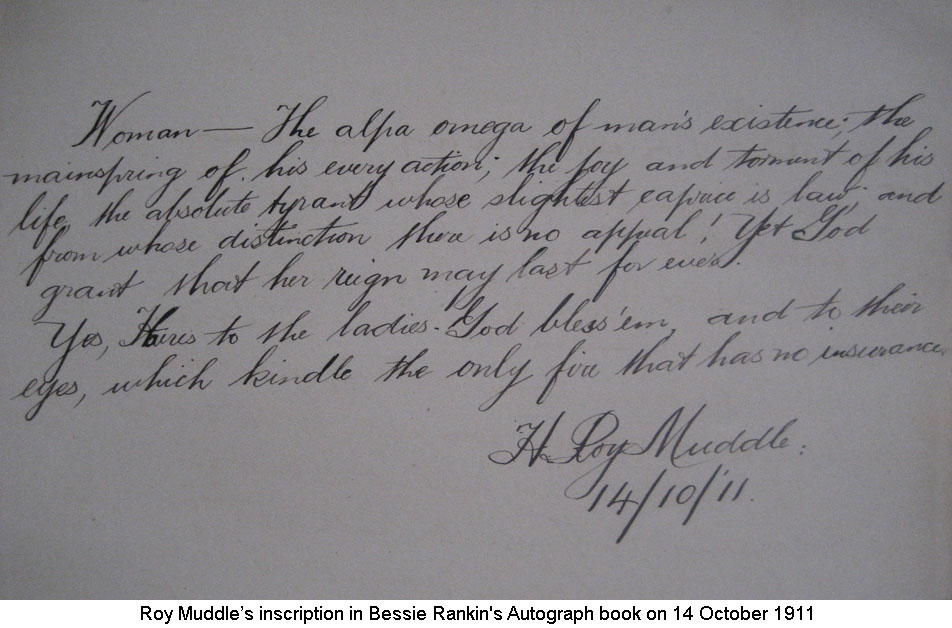 Woman — The alpa omega of man's existence; the
mainspring of his every action; the joy and torment of his
life, the absolute tyrant whose slightest caprice is law; and
from whose distinction there is no appeal! Yet God
grant that her reign may last for ever.
Yes, Heres to the ladies - God bless 'em, and to their
eyes, which kindle the only fire that has no insurance.
H. Roy Muddle.
14/10/'11.
Roy Muddle's inscription in Bessie Rankin's Autograph book on 14 October 1911